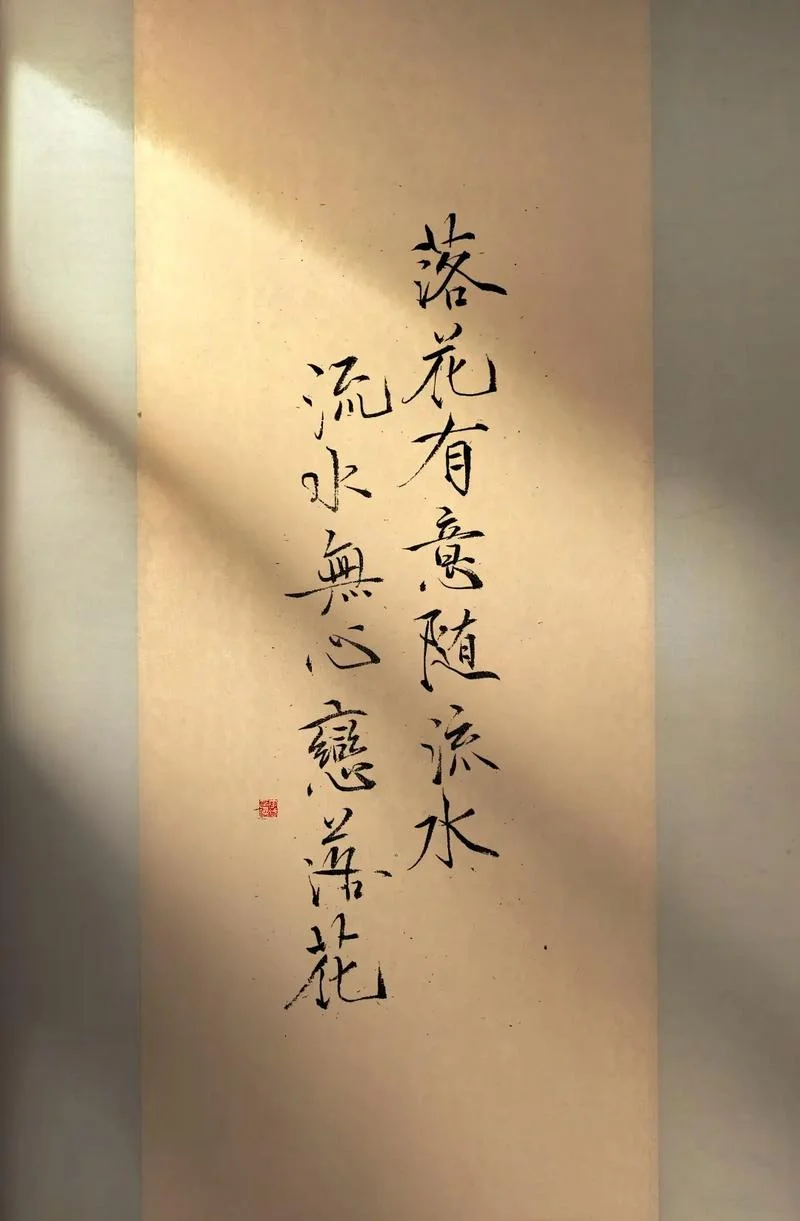 落花有意随流水
流水無心戀落花